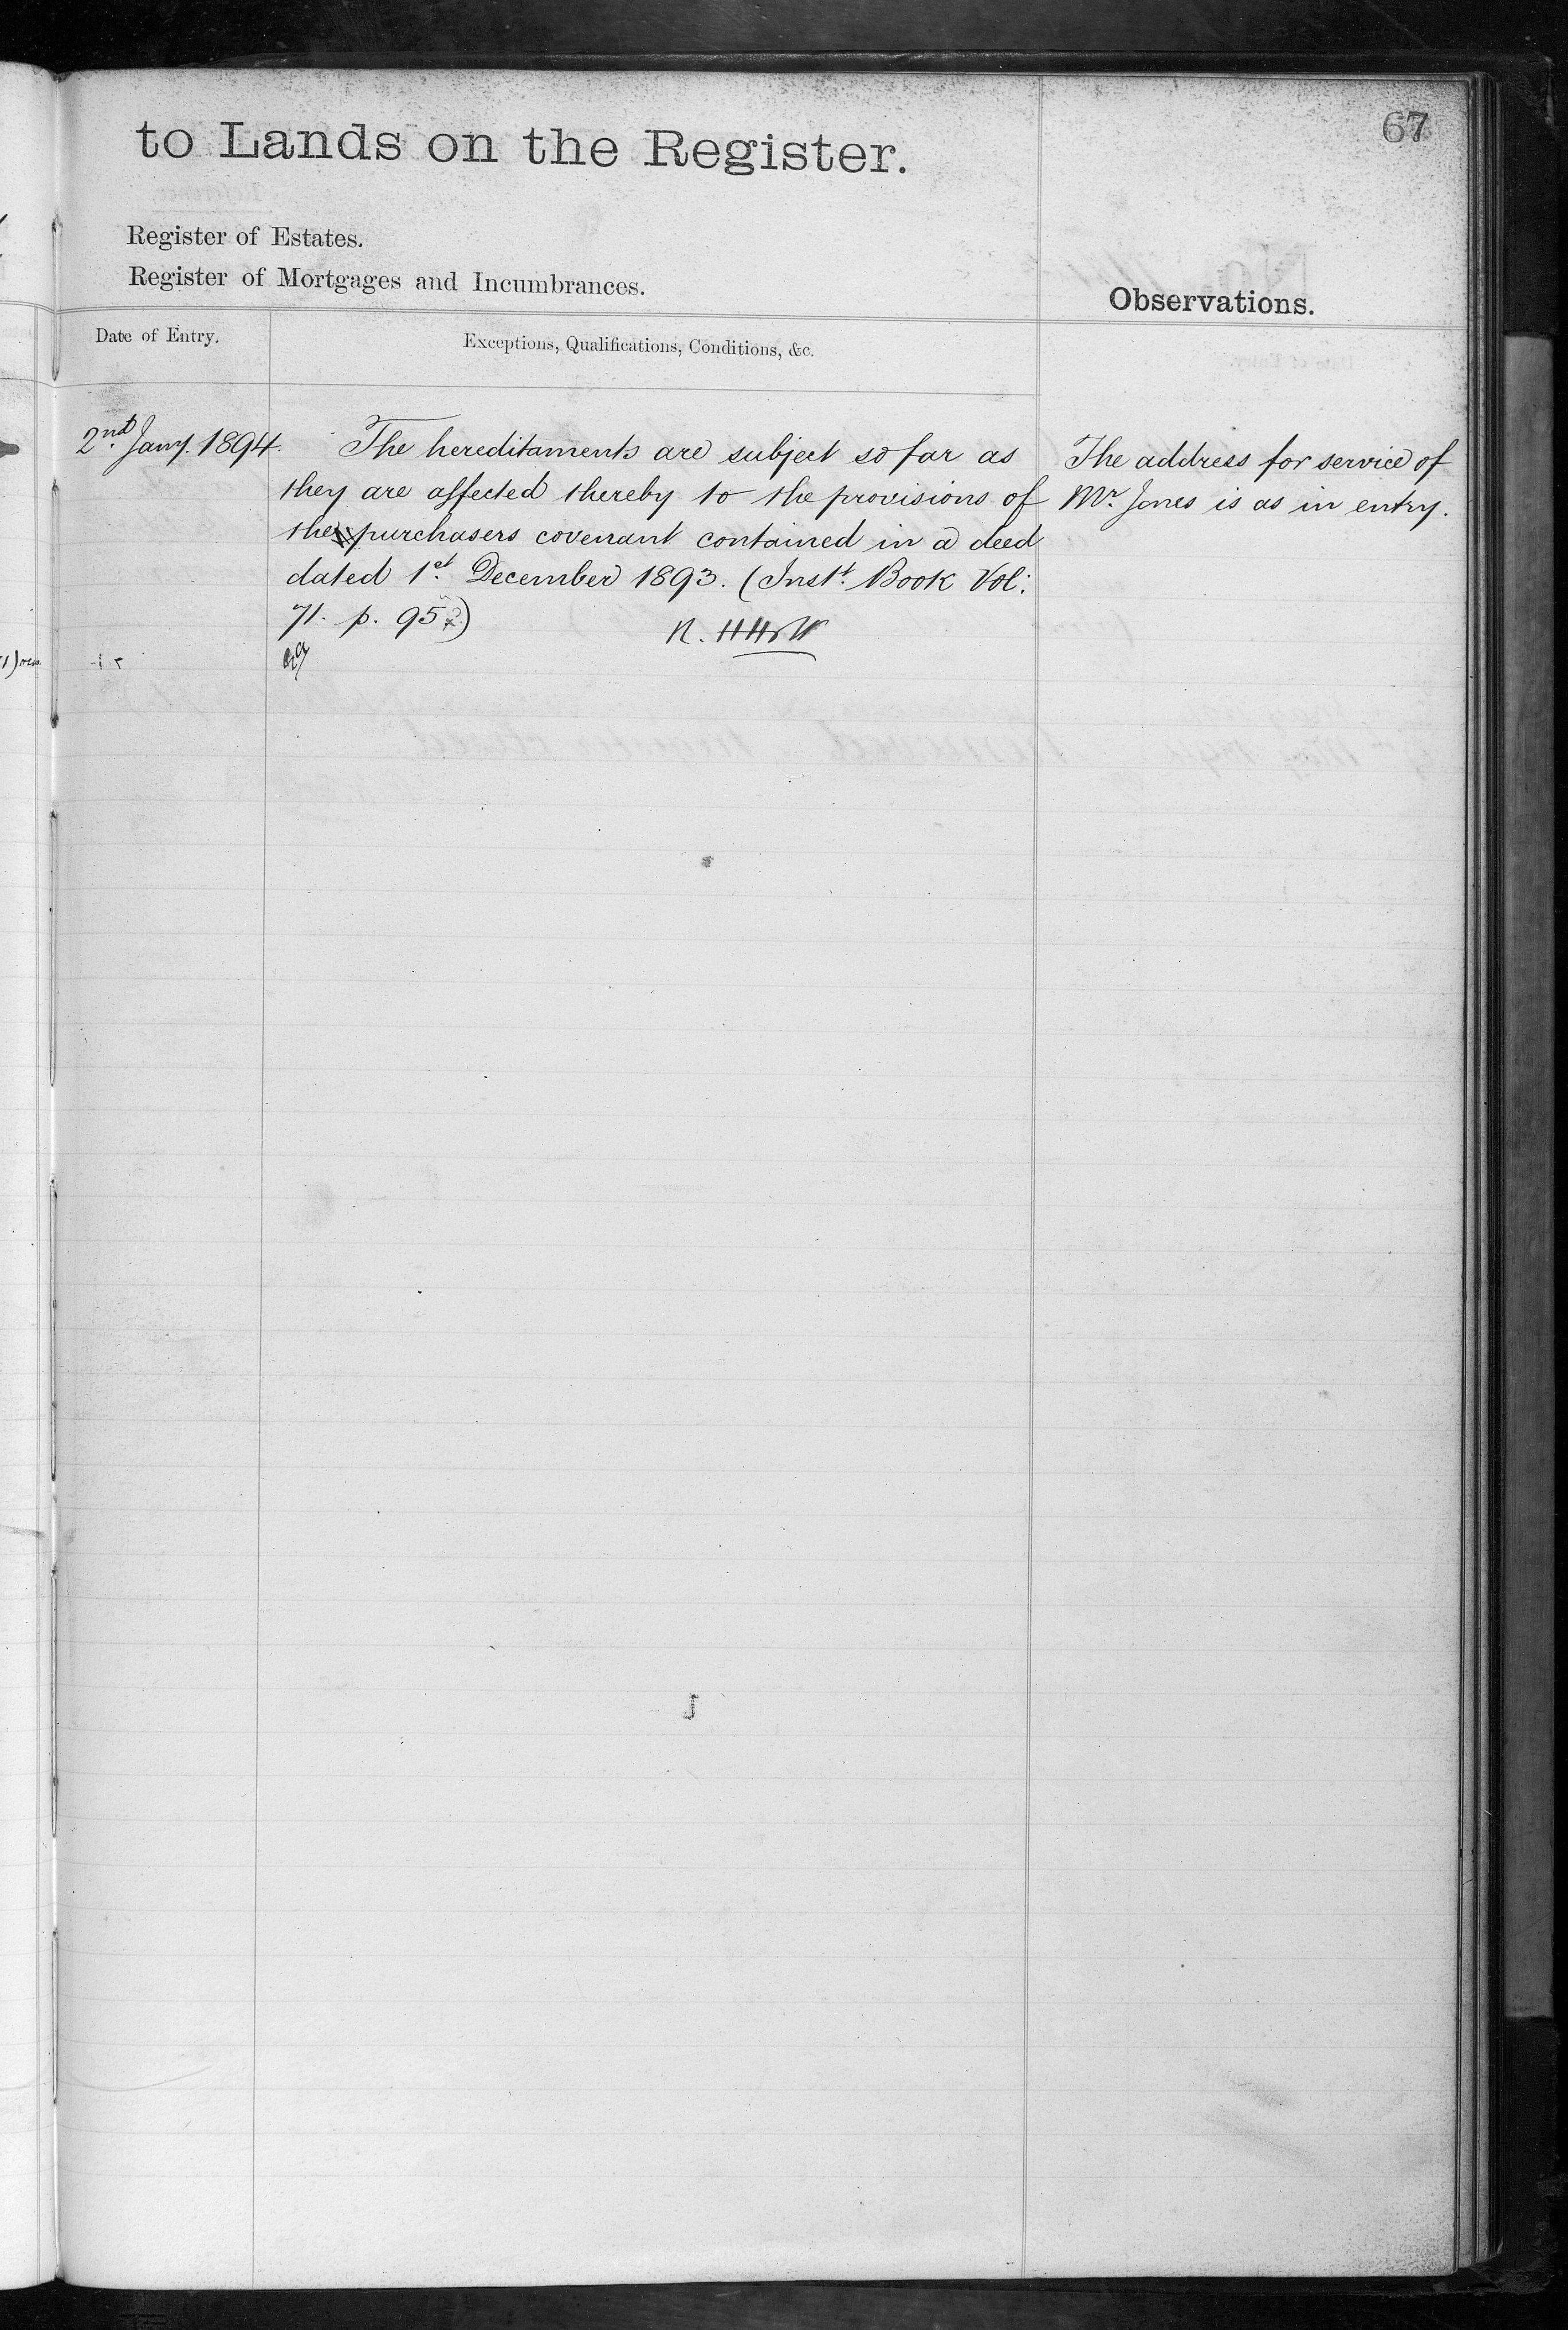 67
to Lands on the Register.
Register of Estates.
Register of Mortgages and Incumbrances.
Observations.
Date of Entry.
Exceptions, Qualifications, Conditions, &c.
2nd Jany. 1894
The hereditaments are subject so far as
they are affected thereby to the provisions of
the purchasers covenant contained in a deed
dated 1st. December 1893. (Inst. Book Vol:
71. p. 952)
The address for service of
Mr. Jones is as in entry.